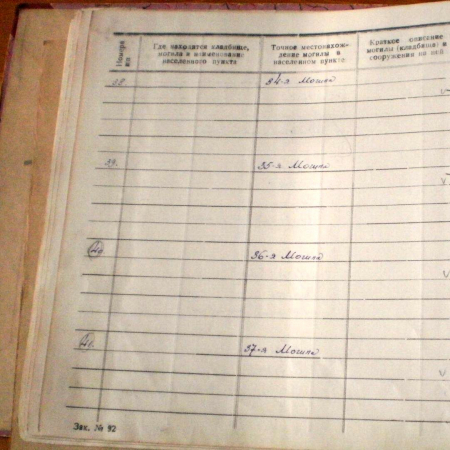 Номера
Где находится кладбище,
могила и наименование
населенного пункта
Точное местонахож-
дение могилы в
населенном пункте
Краткое описание
могилы (кладбища) и
сооружения на ней
38.
34-я Могила
39.
35-я Могила
40
36-я Могила
41.
37-я Могила
Зак. № 92